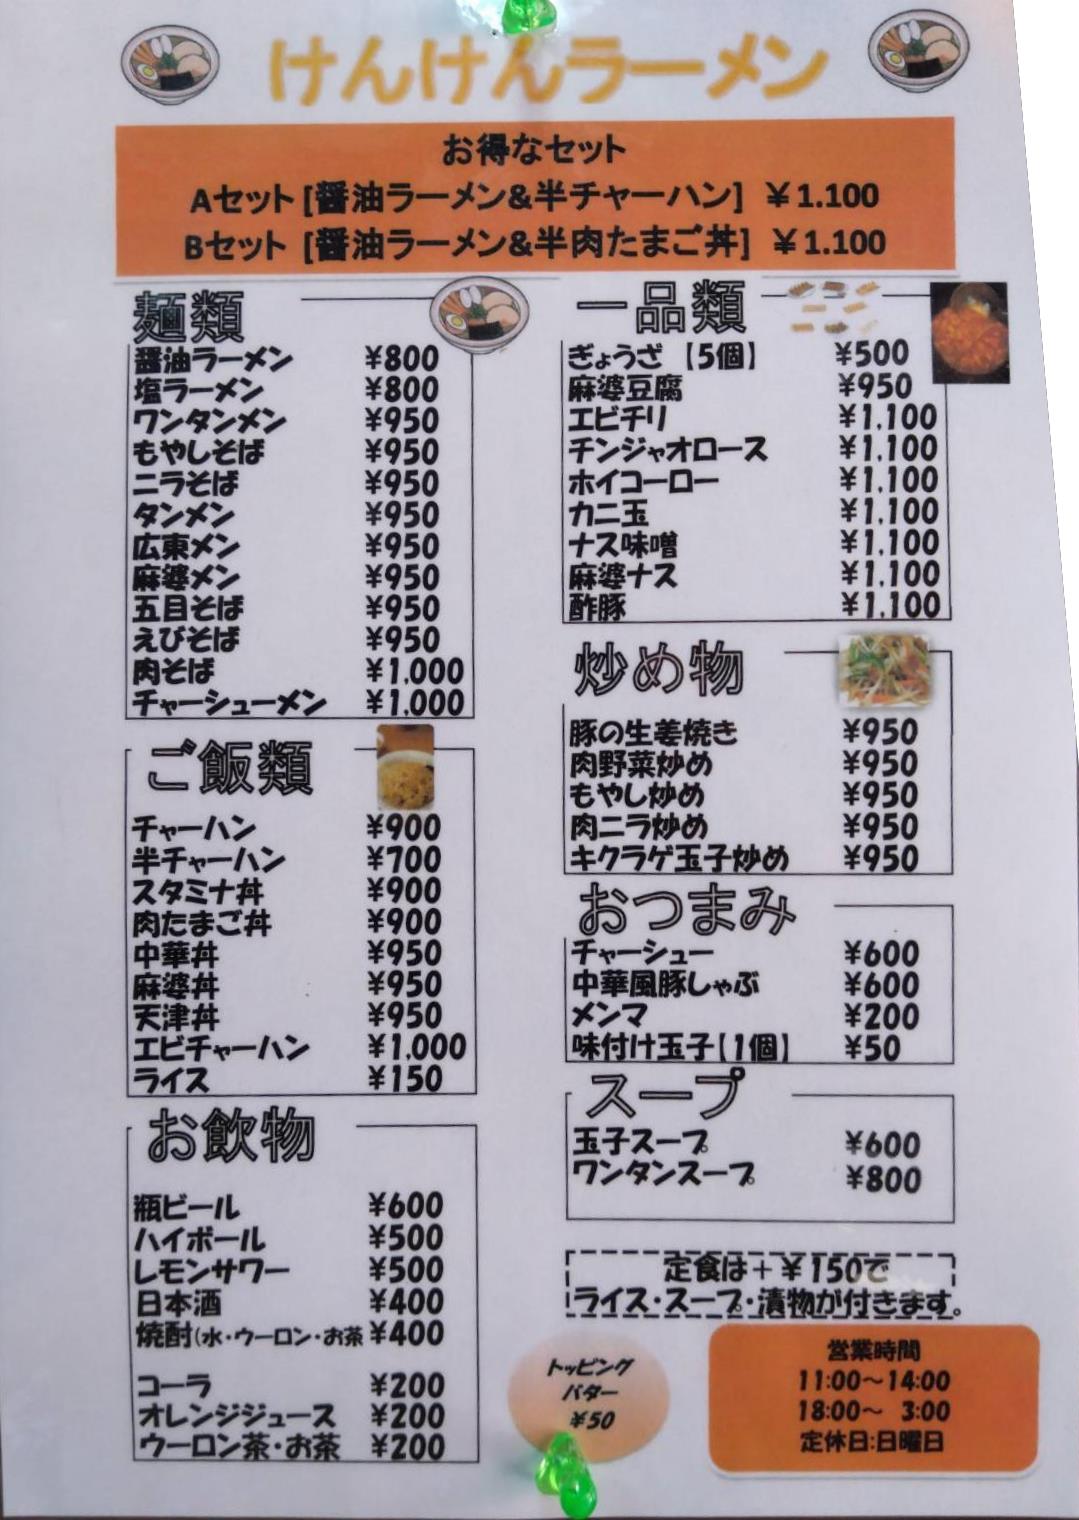 けんけんラーメン
お得なセット
Aセット [醤油ラーメン&半チャーハン] ¥1.100
Bセット [醤油ラーメン&半肉たまご丼] ¥1.100
麺類
醤油ラーメン ¥800
塩ラーメン ¥800
ワンタンメン ¥950
もやしそば ¥950
ニラそば ¥950
タンメン ¥950
広東メン ¥950
麻婆メン ¥950
五目そば ¥950
えびそば ¥950
肉そば ¥1,000
チャーシューメン ¥1,000
ご飯類
チャーハン ¥900
半チャーハン ¥700
スタミナ丼 ¥900
肉たまご丼 ¥900
中華丼 ¥950
麻婆丼 ¥950
天津丼 ¥950
エビチャーハン ¥1,000
ライス ¥150
お飲物
瓶ビール ¥600
ハイボール ¥500
レモンサワー ¥500
日本酒 ¥400
焼酎(水・ウーロン・お茶 ¥400
コーラ ¥200
オレンジジュース ¥200
ウーロン茶・お茶 ¥200
一品類
ぎょうざ【5個】 ¥500
麻婆豆腐 ¥950
エビチリ ¥1,100
チンジャオロース ¥1,100
ホイコーロー ¥1,100
カニ玉 ¥1,100
ナス味噌 ¥1,100
麻婆ナス ¥1,100
酢豚 ¥1,100
炒め物
豚の生姜焼き ¥950
肉野菜炒め ¥950
もやし炒め ¥950
肉ニラ炒め ¥950
キクラゲ玉子炒め ¥950
おつまみ
チャーシュー ¥600
中華風豚しゃぶ ¥600
メンマ ¥200
味付け玉子【1個】 ¥50
スープ
玉子スープ ¥600
ワンタンスープ ¥800
定食は+¥150で
ライス・スープ・漬物が付きます。
トッピング
バター
¥50
営業時間
11:00～14:00
18:00～ 3:00
定休日:日曜日